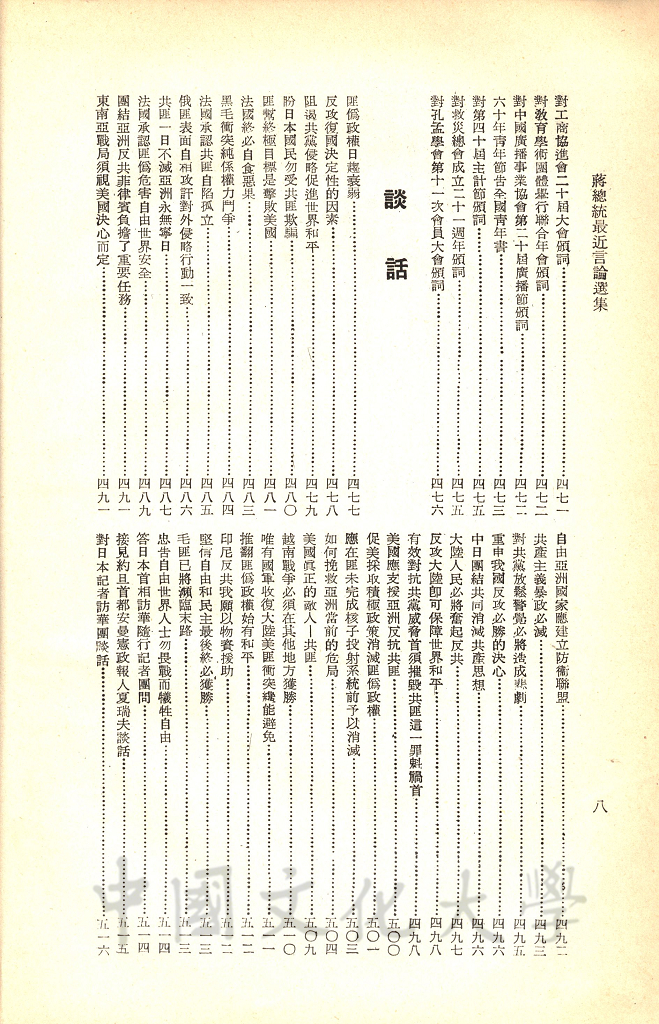 蔣總統最近言論選集
八
對工商協進會二十屆大會頒詞……四七一
對教育學術團體舉行聯合年會頒詞……四七二
對中國廣播事業協會第二十屆廣播節頒詞……四七二
六十年青年節告全國青年書……四七三
對第四十屆主計節頒詞……四七五
對救災總會成立二十一週年頒詞……四七五
對孔孟學會第十一次會員大會頒詞……四七六
談話
匪僞政權日趨衰弱……四七七
反攻復國決定性的因素……四七八
阻遏共黨侵略促進世界和平……四七九
盼日本國民勿受共匪欺騙……四八〇
匪幫終極目標是擊敗美國……四八一
法國終必自食惡果……四八三
黑毛衝突純係權力鬥爭……四八四
法國承認共匪自陷孤立……四八五
俄匪表面自相攻訐對外侵略行動一致……四八六
共匪一日不滅亞洲永無寧日……四八七
法國承認匪僞危害自由世界安全……四八九
團結亞洲反共菲律賓負擔了重要任務……四九一
東南亞戰局須視美國決心而定……四九一
自由亞洲國家應建立防衞聯盟……四九二
共產主義暴政必滅……四九三
對共黨放鬆警覺必將造成悲劇……四九五
重申我國反攻必勝的決心……四九六
中日團結共同消滅共產思想……四九六
大陸人民必將奮起反共……四九七
反攻大陸卽可保障世界和平……四九八
有效對抗共黨威脅首須摧毀共匪這一罪魁禍首……四九八
美國應支援亞洲反抗共匪……五〇〇
促美採取積極政策消滅匪僞政權……五〇一
應在匪未完成核子投射系統前予以消滅……五〇三
如何挽救亞洲當前的危局……五〇四
美國眞正的敵人—共匪……五〇九
越南戰爭必須在其他地方獲勝……五一〇
唯有國軍收復大陸美匪衝突纔能避免……五一一
推翻匪僞政權始有和平……五一二
印尼反共我願以物資援助……五一二
堅信自由和民主最後終必獲勝……五一三
毛匪已將瀕臨末路……五一三
忠告自由世界人士勿畏戰而犧牲自由……五一四
答日本首相訪華隨行記者團問……五一四
接見約旦首都安曼憲政報人夏瑞夫談話……五一五
對日本記者訪華團談話……五一六
中國文化大學